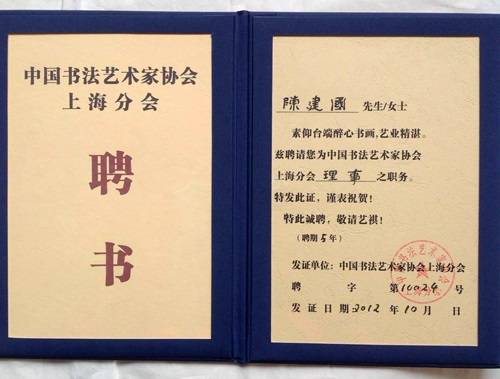 中国书法艺术家协会
上海分会
聘
书
陳建國 先生/女士
素仰台端醉心书画,艺业精湛。
兹聘请您为中国书法艺术家协会
上海分会 理事 之职务。
特发此证，谨表祝贺!
特此诚聘，敬请艺祺!
(聘期5年)
发证单位: 中国书法艺术家协会上海分会
聘 字 第10024号
发证日期:2012年10月 日